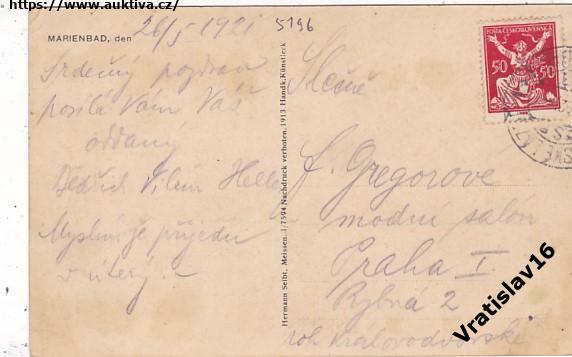 https://www.auktiva.cz/
MARIENBAD, den 26/5 1921
5196
Srdečný pozdrav
posílá Vám Váš
oddaný
Bedřich Vilém Heller
Myslím že přijedu
v úterý.
Hermann Seibt, Meissen. 1/7594 Nachdruck verboten. 1913 Handk. Künstleck
POŠTA ČESKOSLOVENSKÁ
50 50
Slečně
F. Gregorové
modní salón
Praha I.
Rybná 2
roh Královodvorské
Vratislav16